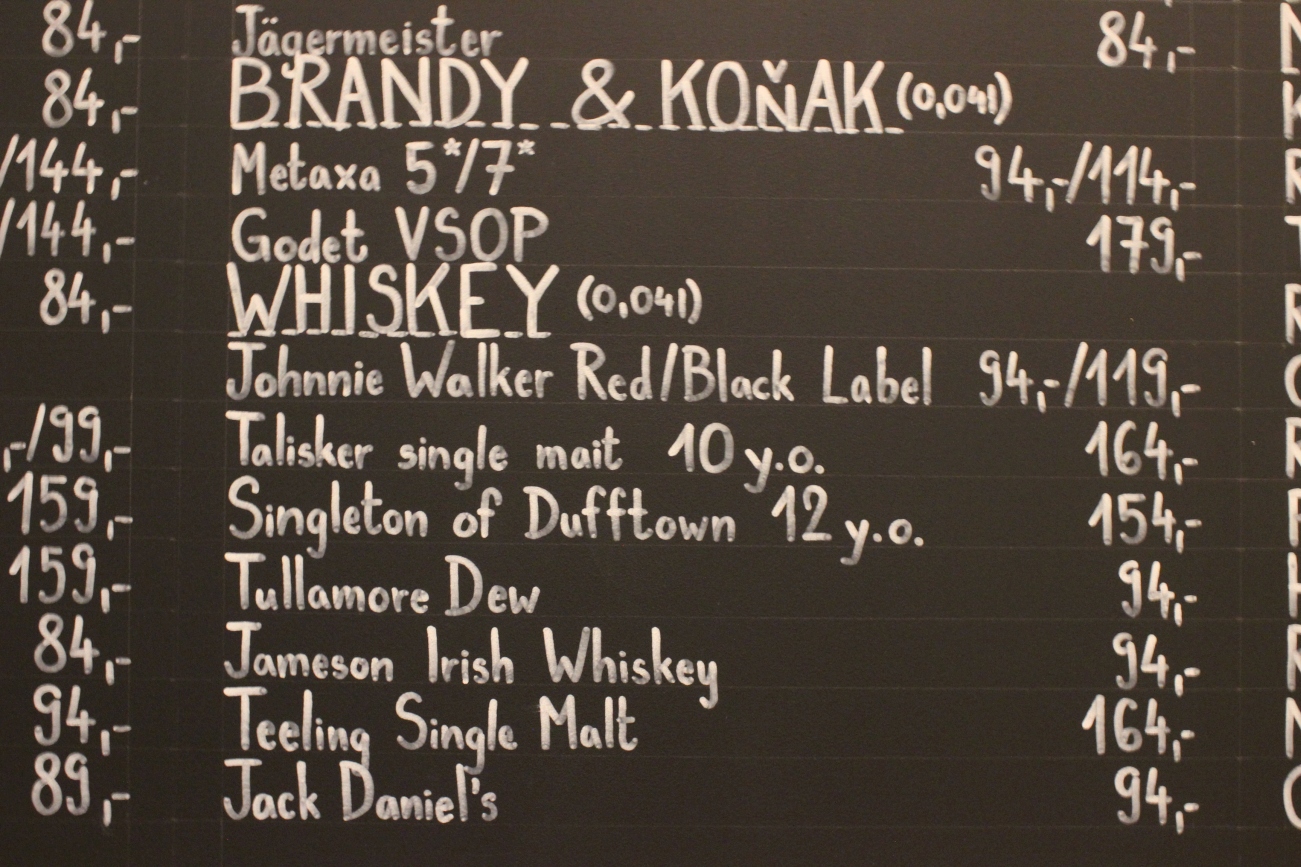 84,- Jägermeister 84,-
84,- BRANDY & KOŇAK (0,04l)
/144,- Metaxa 5*/7* 94,-/114,-
/144,- Godet VSOP 179,-
84,- WHISKEY (0,04l)
Johnnie Walker Red/Black Label 94,-/119,-
,-/99,- Talisker single mait 10 y.o. 164,-
159,- Singleton of Dufftown 12 y.o. 154,-
159,- Tullamore Dew 94,-
84,- Jameson Irish Whiskey 94,-
94,- Teeling Single Malt 164,-
89,- Jack Daniel's 94,-